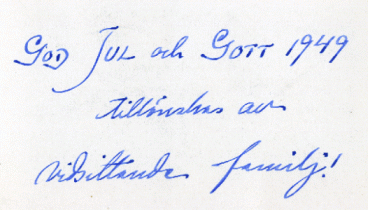 GOD JUL och GOTT 1949
tillönskas av
vidsittande familj!